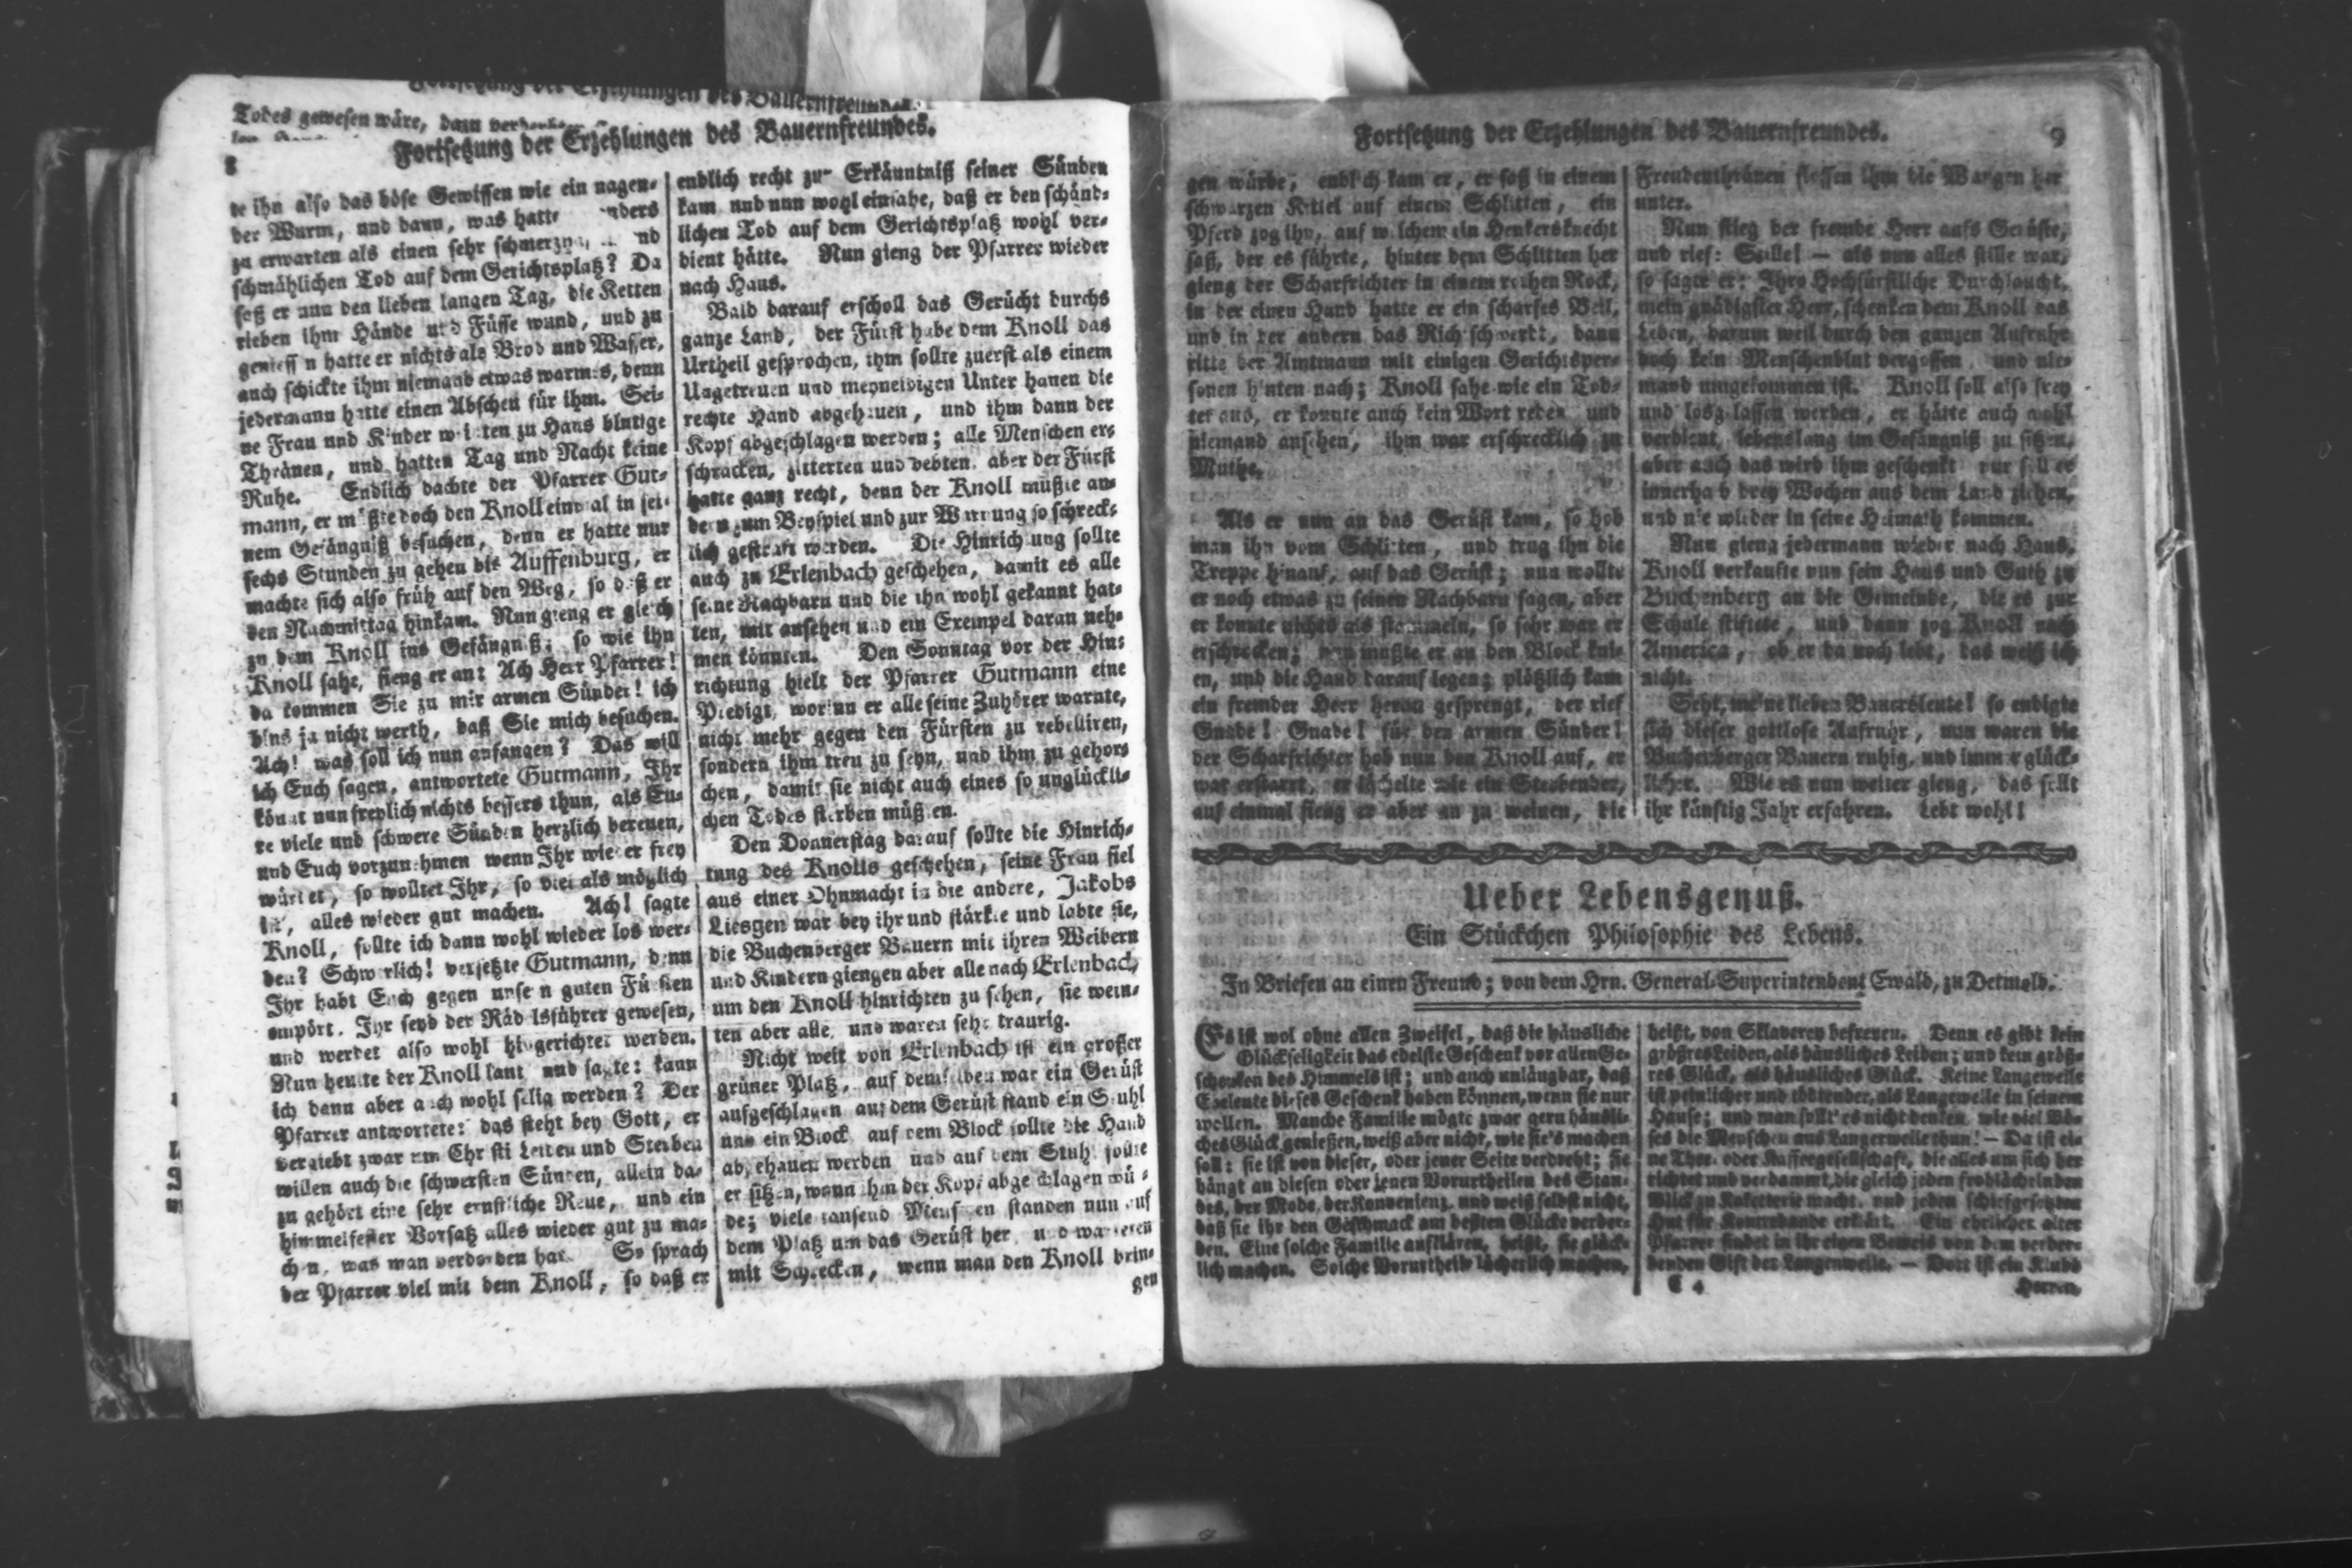 Todes gewesen wäre, dazu
Fortsetzung der Erzehlungen des Bauernfreundes.
8
te ihn also das böse Gewissen wie ein nagen-
der Wurm, und dann, was hatte
zu erwarten als einen sehr
schmählichen Tod auf dem Gerichtsplatz? Da
saß er nun den lieben langen Tag, die Ketten
rieben ihm Hände und Füsse wund, und zu
geniessen hatte er nichts als Brod und Wasser,
auch schickte ihm niemand etwas warmes, denn
jedermann hatte einen Abscheu für ihm. Sei-
ne Frau und Kinder weinten zu Haus blutige
Thränen, und hatten Tag und Nacht keine
Ruhe. Endlich dachte der Pfarrer Gut-
mann, er müßte doch den Knoll einmal in sei-
nem Gefängniß besuchen, denn er hatte nur
sechs Stunden zu gehen bis Auffenburg, er
machte sich also früh auf den Weg, so daß er
den Nachmittag hinkam. Nun gieng er gleich
zu dem Knoll ins Gefängniß; so wie ihn
Knoll sahe, fieng er an: Ach Herr Pfarrer!
da kommen Sie zu mir armen Sünder! ich
bins ja nicht werth, daß Sie mich besuchen.
Ach! was soll ich nun anfangen? Das will
ich Euch sagen, antwortete Gutmann, Ihr
könnt nun freylich nichts bessers thun, als Eu-
re viele und schwere Sünden herzlich bereuen,
und Euch vorzunehmen wenn Ihr wieder frey
würdet, so wolltet Ihr, so viel als möglich
ist, alles wieder gut machen. Ach! sagte
Knoll, sollte ich dann wohl wieder los wer-
den? Schwerlich! versetzte Gutmann, denn
Ihr habt Euch gegen unsern guten Fürsten
empört. Ihr seyd der Rädelsführer gewesen,
und werdet also wohl hingerichtet werden.
Nun heulte der Knoll laut und sagte: kann
ich dann aber auch wohl selig werden? Der
Pfarrer antwortete: das steht bey Gott, er
vergiebt zwar um Christi Leiden und Sterben
willen auch die schwersten Sünden, allein da-
zu gehört eine sehr ernstliche Reue, und ein
himmelfester Vorsatz alles wieder gut zu ma-
chen, was man verdorben hat. So sprach
der Pfarrer viel mit dem Knoll, so daß er
endlich recht zur Erkänntniß seiner Sünden
kam und nun wohl einsahe, daß er den schänd-
lichen Tod auf dem Gerichtsplatz wohl ver-
dient hätte. Nun gieng der Pfarrer wieder
nach Haus.
Bald darauf erscholl das Gerücht durchs
ganze Land, der Fürst habe dem Knoll das
Urtheil gesprochen, ihm sollte zuerst als einem
Ungetreuen und meyneidigen Unterthanen die
rechte Hand abgehauen, und ihm dann der
Kopf abgeschlagen werden; alle Menschen er-
schracken, zitterten und bebten, aber der Fürst
hatte ganz recht, denn der Knoll müßte an-
dern zum Beyspiel und zur Warnung so schreck-
lich gestraft werden. Die Hinrichtung sollte
auch zu Erlenbach geschehen, damit es alle
seine Nachbarn und die ihn wohl gekannt hat-
ten, mit ansehen und ein Exempel daran neh-
men könnten. Den Sonntag vor der Hin-
richtung hielt der Pfarrer Gutmann eine
Predigt, worinn er alle seine Zuhörer warnte,
nicht mehr gegen den Fürsten zu rebelliren,
sondern ihm treu zu seyn, und ihm zu gehor-
chen, damit sie nicht auch eines so unglückli-
chen Todes sterben müßten.
Den Donnerstag darauf sollte die Hinrich-
tung des Knolls geschehen, seine Frau fiel
aus einer Ohnmacht in die andere, Jakobs
Liesgen war bey ihr und stärkte und labte sie,
die Buchenberger Bauern mit ihren Weibern
und Kindern giengen aber alle nach Erlenbach
um den Knoll hinrichten zu sehen, sie wein-
ten aber alle, und waren sehr traurig.
Nicht weit von Erlenbach ist ein grosser
grüner Platz, auf demselben war ein Gerüst
aufgeschlagen auf dem Gerüst stand ein Stuhl
und ein Block, auf dem Block sollte die Hand
abgehauen werden und auf dem Stuhl sollte
er sitzen, wann ihm der Kopf abgeschlagen wür-
de; viele tausend Menschen standen nun auf
dem Platz um das Gerüst her, und warteten
mit Schrecken, wenn man den Knoll brin-
gen
Fortsetzung der Erzehlungen des Bauernfreundes.
9
gen würde, endlich kam er, er saß in einem
schwarzen Kittel auf einem Schlitten, ein
Pferd zog ihn, auf welchem ein Henkersknecht
saß, der es führte, hinter dem Schlitten her
gieng der Scharfrichter in einem rothen Rock,
in der einen Hand hatte er ein scharfes Beil,
und in der andern das Richtschwerdt, dann
ritte der Amtmann mit einigen Gerichtsper-
sonen hinten nach; Knoll sahe wie ein Tod-
ter aus, er konnte auch kein Wort reden und
niemand ansehen, ihm war erschrecklich zu
Muthe.
Als er nun an das Gerüst kam, so hob
man ihn vom Schlitten, und trug ihn die
Treppe hinauf, auf das Gerüst; nun wollte
er noch etwas zu seinen Nachbarn sagen, aber
er konnte nichts als stammeln, so sehr war er
erschrocken; nun mußte er an den Block kni-
en, und die Hand darauf legen; plötzlich kam
ein fremder Herr heran gesprengt, der rief
Gnade! Gnade! für den armen Sünder!
der Scharfrichter hob nun den Knoll auf, er
war erstarrt, er lächelte wie ein Sterbender,
auf einmal fieng er aber an zu weinen, die
Freudenthränen flossen ihm die Wangen her
unter.
Nun stieg der fremde Herr aufs Gerüste,
und rief: Stille! — als nun alles stille war,
so sagte er: Ihro Hochfürstliche Durchlaucht,
mein gnädigster Herr, schenken dem Knoll das
Leben, darum weil durch den ganzen Aufruhr
doch kein Menschenblut vergossen, und nie-
mand umgekommen ist. Knoll soll also frey
und losgelassen werden, er hätte auch wohl
verdient, lebenslang im Gefängniß zu sitzen,
aber auch das wird ihm geschenkt nur soll er
innerhalb drey Wochen aus dem Land ziehen,
und nie wieder in seine Heimath kommen.
Nun gieng jedermann wieder nach Haus,
Knoll verkaufte nun sein Haus und Guth zu
Buchenberg an die Gemeinde, die es zur
Schule stiftete, und dann zog Knoll nach
America, ob er da noch lebt, das weiß ich
nicht.
Seht, meine lieben Bauersleute! so endigte
sich dieser gottlose Aufruhr, nun waren die
Buchenberger Bauern ruhig, und immer glück-
licher. Wie es nun weiter gieng, das sollt
ihr künftig Jahr erfahren. Lebt wohl!
Ueber Lebensgenuß.
Ein Stückchen Philosophie des Lebens.
In Briefen an einen Freund; von dem Hrn. General-Superintendent Ewald, zu Detmold.
Es ist wol ohne allen Zweifel, daß die häusliche
Glückseligkeit das edelste Geschenk vor allen Ge-
schenken des Himmels ist; und auch unläugbar, daß
Eheleute dieses Geschenk haben können, wenn sie nur
wollen. Manche Familie mögte zwar gern häusli-
ches Glück genießen, weiß aber nicht, wie sie's machen
soll: sie ist von dieser, oder jener Seite verdreht; sie
hängt an diesen oder jenen Vorurtheilen des Stan-
des, der Mode, der Konvenienz, und weiß selbst nicht,
daß sie ihr den Geschmack am besten Glücke verder-
ben. Eine solche Familie aufklären, heißt, sie glück-
lich machen. Solche Vorurtheile lächerlich machen,
heißt, von Sklaverey befreyen. Denn es gibt kein
größres Leiden, als häusliches Leiden; und kein größ-
res Glück, als häusliches Glück. Keine Langeweile
ist peinlicher und tödtender, als Langeweile in seinem
Hause; und man sollt' es nicht denken, wie viel Bö-
ses die Menschen aus Langerweile thun! — Da ist ei-
ne Thee- oder Kaffeegesellschaft, die alles um sich her
richtet und verdammt, die gleich jeden frohlächelnden
Blick zu Koketterie macht, und jeden schiefgesetzten
Hut für Kontrebande erklärt. Ein ehrlicher alter
Pfarrer findet in ihr einen Beweis von dem verder-
benden Gift der Langenweile. — Dort ist ein Klubb
C 4
Herren,